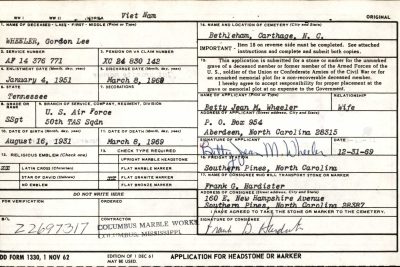 WW I WW II KOREA Viet Nam
ORIGINAL
1. NAME OF DECEASED - LAST - FIRST - MIDDLE (Print or Type)
WHEELER, Gordon Lee
14. NAME AND LOCATION OF CEMETERY (City and State)
Bethlehem, Carthage, N. C.
IMPORTANT: Item 18 on reverse side must be completed. See attached instructions and complete and submit both copies.
2. SERVICE NUMBER
3. PENSION OR VA CLAIM NUMBER
AF 14 376 771
XC 24 830 142
15. This application is submitted for a stone or marker for the unmarked grave of a deceased member or former member of the Armed Forces of the U. S., soldier of the Union or Confederate Armies of the Civil War or for an unmarked memorial plot for a non-recoverable deceased member.
I hereby agree to accept responsibility for proper placement at the grave or memorial plot at no expense to the Government.
4. ENLISTMENT DATE (Month, day, year)
5. DISCHARGE DATE (Month, day, year)
January 4, 1951
March 8, 1969
6. STATE
7. DECORATIONS
Tennessee
NAME OF APPLICANT (Print or Type)
RELATIONSHIP
Betty Jean M. Wheeler
Wife
8. GRADE
9. BRANCH OF SERVICE, COMPANY, REGIMENT, DIVISION
SSgt
U. S. Air Force
50th TAS Sqdn
ADDRESS OF APPLICANT (Street address, City and State)
P. O. Box 954
Aberdeen, North Carolina 28315
10. DATE OF BIRTH (Month, day, year)
11. DATE OF DEATH (Month, day, year)
August 16, 1931
March 8, 1969
SIGNATURE OF APPLICANT
DATE
Betty Jean M. Wheeler
12-31-69
12. RELIGIOUS EMBLEM (Check one)
13. CHECK TYPE REQUIRED
UPRIGHT MARBLE HEADSTONE
XX LATIN CROSS (Christian)
FLAT MARBLE MARKER
STAR OF DAVID (Hebrew)
FLAT GRANITE MARKER
NO EMBLEM
FLAT BRONZE MARKER
16. FREIGHT STATION
Southern Pines, North Carolina
17. NAME OF CONSIGNEE WHO WILL TRANSPORT STONE OR MARKER
Frank G. Hardister
DO NOT WRITE HERE
ADDRESS OF CONSIGNEE (Street address, City and State)
160 E. New Hampshire Avenue
Southern Pines, North Carolina 28387
B/L
Z2697317
CONTRACTOR
COLUMBUS MARBLE WORKS
COLUMBUS, MISSISSIPPI
I HAVE AGREED TO TAKE THE STONE OR MARKER TO THE CEMETERY.
SIGNATURE OF CONSIGNEE
DD FORM 1330, 1 NOV 62
EDITION OF 1 DEC 61
APPLICATION FOR HEADSTONE OR MARKER